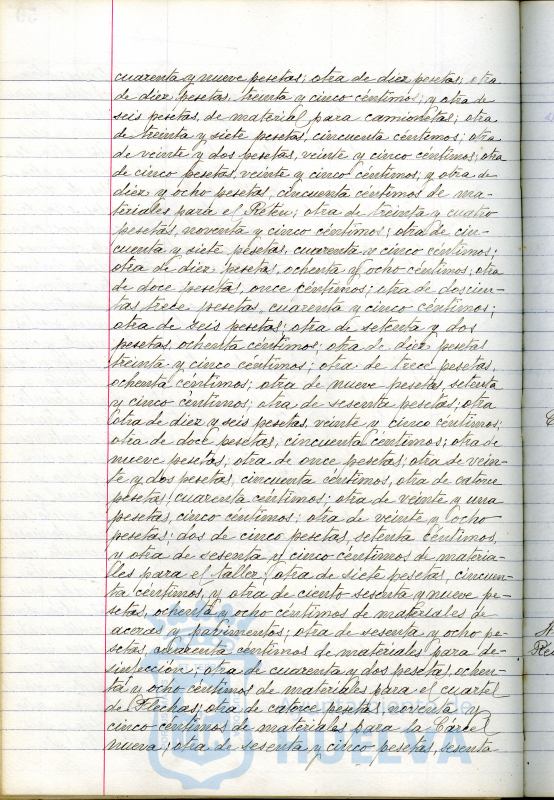 cuarenta y nueve pesetas; otra de diez pesetas; otra
de diez pesetas, treinta y cinco céntimos; y otra de
seis pesetas, de material para camionetas; otra
de treinta y siete pesetas, cincuenta céntimos; otra
de veinte y dos pesetas, veinte y cinco céntimos; otra
de cinco pesetas, veinte y cinco céntimos, y otra de
diez y ocho pesetas, cincuenta céntimos de ma-
teriales para el Reten; otra de treinta y cuatro
pesetas, noventa y cinco céntimos; otra de cin-
cuenta y siete pesetas, cuarenta y cinco céntimos;
otra de diez pesetas, ochenta y ocho céntimos, otra
de doce pesetas, once céntimos; otra de doscien-
tas trece pesetas, cuarenta y cinco céntimos;
otra de seis pesetas; otra de setenta y dos
pesetas, ochenta céntimos; otra de diez pesetas
treinta y cinco céntimos; otra de trece pesetas,
ochenta céntimos; otra de nueve pesetas, setenta
y cinco céntimos; otra de sesenta pesetas; otra
otra de diez y seis pesetas, veinte y cinco céntimos;
otra de doce pesetas, cincuenta céntimos; otra de
nueve pesetas; otra de once pesetas; otra de vein-
te y dos pesetas, cincuenta céntimos, otra de catorce
pesetas, cuarenta céntimos; otra de veinte y una
pesetas, cinco céntimos; otra de veinte y ocho
pesetas; dos de cinco pesetas, setenta céntimos,
y otra de sesenta y cinco céntimos de materia-
lles para el taller; otra de siete pesetas, cincuen-
ta céntimos, y otra de ciento sesenta y nueve pe-
setas, ochenta y ocho céntimos de materiales de
aceras y pabimentos; otra de sesenta y ocho pe-
setas, cuarenta céntimos de materiales para de-
sinfección; otra de cuarenta y dos pesetas, ochen-
ta y ocho céntimos de materiales para el cuartel
de Flechas; otra de catorce pesetas, noventa y
cinco céntimos de materiales para la Cárcel
nueva; otra de sesenta y cinco pesetas, sesenta
HUELVA